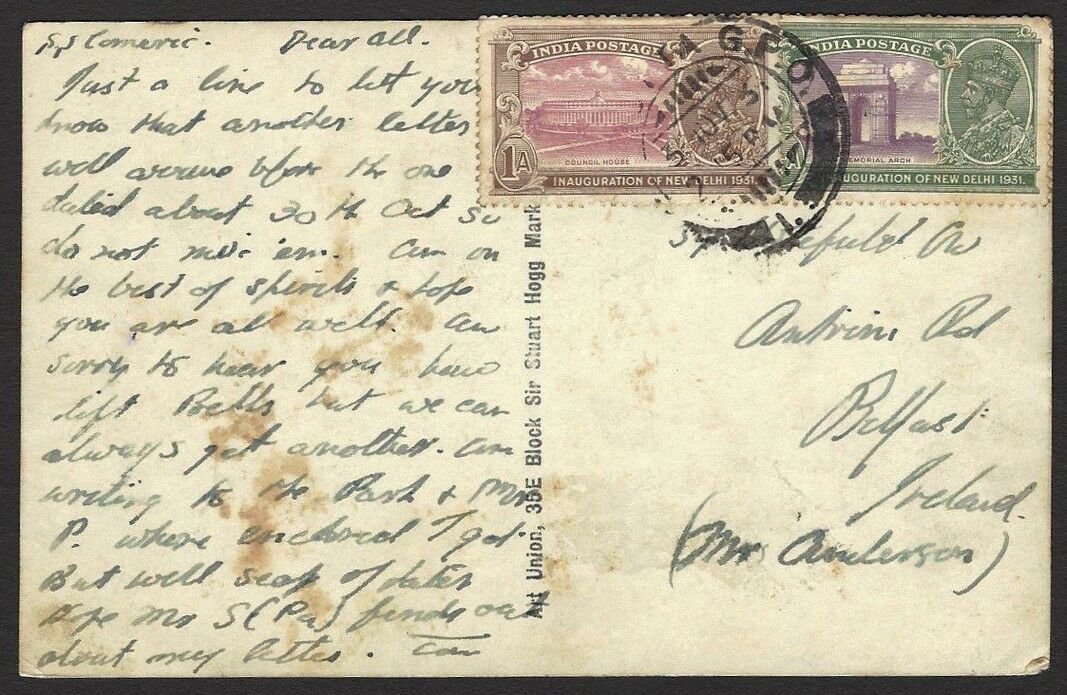 SS Comeric. Dear All.
Just a line to let you
know that another letter
will arrive before the one
dated about 30th Oct so
do not mix 'em. Am in
the best of spirits & hope
you are all well. Am
sorry to hear you have
left Bells but we can
always get another. Am
writing to the Park & Mr
P. where enclosed I got
But will scap of later
Hope Mr S (Pa) finds out
about my letter.
INDIA POSTAGE
1A
COUNCIL HOUSE
INAUGURATION OF NEW DELHI 1931.
INDIA POSTAGE
MEMORIAL ARCH
INAUGURATION OF NEW DELHI 1931.
G.P.O.
NOV
Art Union, 35E Block Sir Stuart Hogg Mark
Antrim Rd
Belfast
Ireland.
(Mrs Anderson)